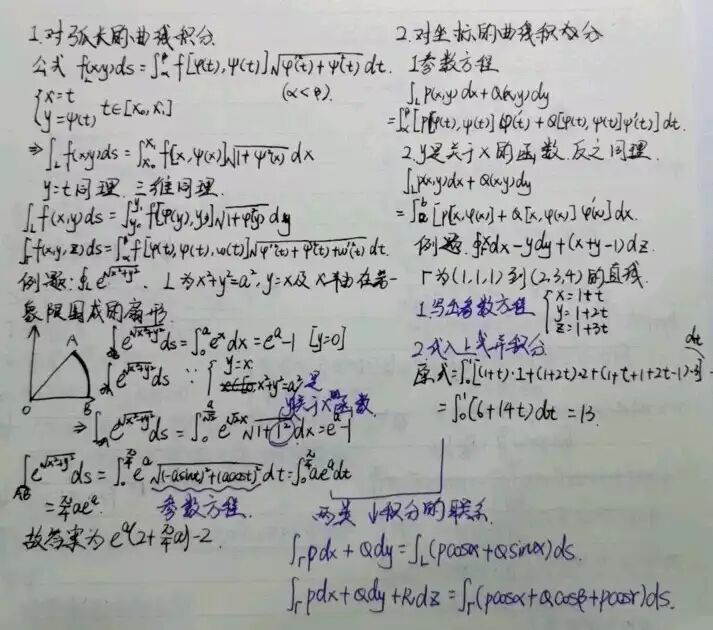 1.对弧长的曲线积分
公式 ∫_L f(x,y)ds = ∫_α^β f[φ(t),ψ(t)]√φ'²(t)+ψ'²(t) dt.
(α<β).
{x=t
y=ψ(t) t∈[x₀,x₁]
⇒∫_L f(x,y)ds = ∫_{x₀}^{x₁} f[x,ψ(x)]√1+ψ'²(x) dx
y=t同理.三维同理.
∫_L f(x,y)ds = ∫_{y₀}^{y₁} f[φ(y),y]√1+φ'²(y) dy
∫_Γ f(x,y,z)ds = ∫_α^β f[φ(t),ψ(t),ω(t)]√φ'²(t)+ψ'²(t)+ω'²(t) dt.
例题:∮_L e^√x²+y². L为x²+y²=a²,y=x及x轴在第一
象限围成的扇形.
A
O B
∫e^√x²+y² ds = ∫_0^a e^x dx = e^a-1 [y=0]
∫e^√x²+y² ds ∵ {y=x
x²+y²=a² 是
关于x函数.
⇒∫e^√x²+y² ds = ∫_0^{a/√2} e^{√2x} √1+1² dx = e^a-1
∫_AB e^√x²+y² ds = ∫_0^{π/4} e^a √(-asint)²+(acost)² dt = ∫_0^{π/4} ae^a dt
= π/4 ae^a. 参数方程.
故答案为 e^a(2+π/4 a)-2
2.对坐标的曲线积分
1.参数方程
∫_L P(x,y)dx+Q(x,y)dy
=∫_α^β [P[φ(t),ψ(t)]φ'(t)+Q[φ(t),ψ(t)]ψ'(t)]dt.
2.y是关于x的函数.反之同理.
∫_L P(x,y)dx+Q(x,y)dy
=∫_a^b [P[x,φ(x)]+Q[x,φ(x)]φ'(x)]dx.
例题.∮xdx-ydy+(x+y-1)dz.
Γ为(1,1,1)到(2,3,4)的直线.
1.写出参数方程 {x=1+t
y=1+2t
z=1+3t
2.代入上式并积分
原式=∫_0^1 [(1+t)·1+(1+2t)·2+(1+t+1+2t-1)·3] dt
=∫_0^1 (6+14t)dt = 13.
两类积分的联系.
∫_Γ Pdx+Qdy = ∫_L (Pcosα+Qsinα)ds.
∫_Γ Pdx+Qdy+Rdz = ∫_Γ (Pcosα+Qcosβ+Pcosr)ds.